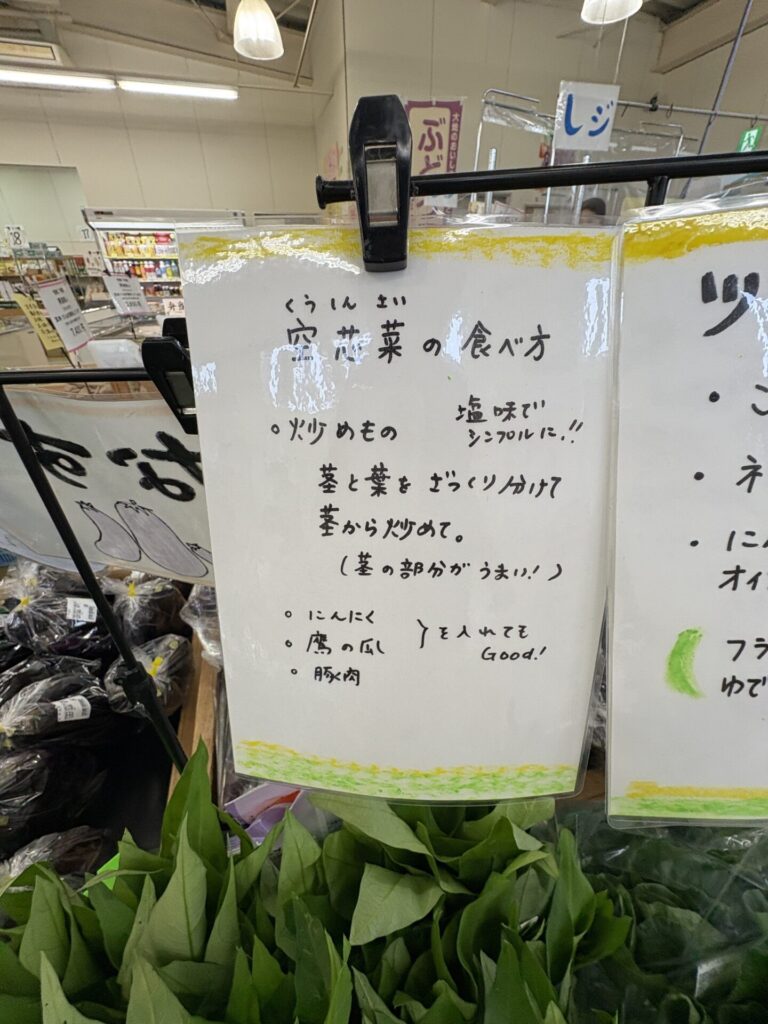 くうしんさい
空芯菜の食べ方
○炒めもの
塩味で
シンプルに!!
茎と葉をざっくり分けて
茎から炒めて。
(茎の部分がうまい!)
○ にんにく
○ 鷹の瓜
○ 豚肉
}を入れても
Good!
ツ
・こ
・ネ
・にん
オイ
フラ
ゆで
レジ
ぶど
大地のおいし